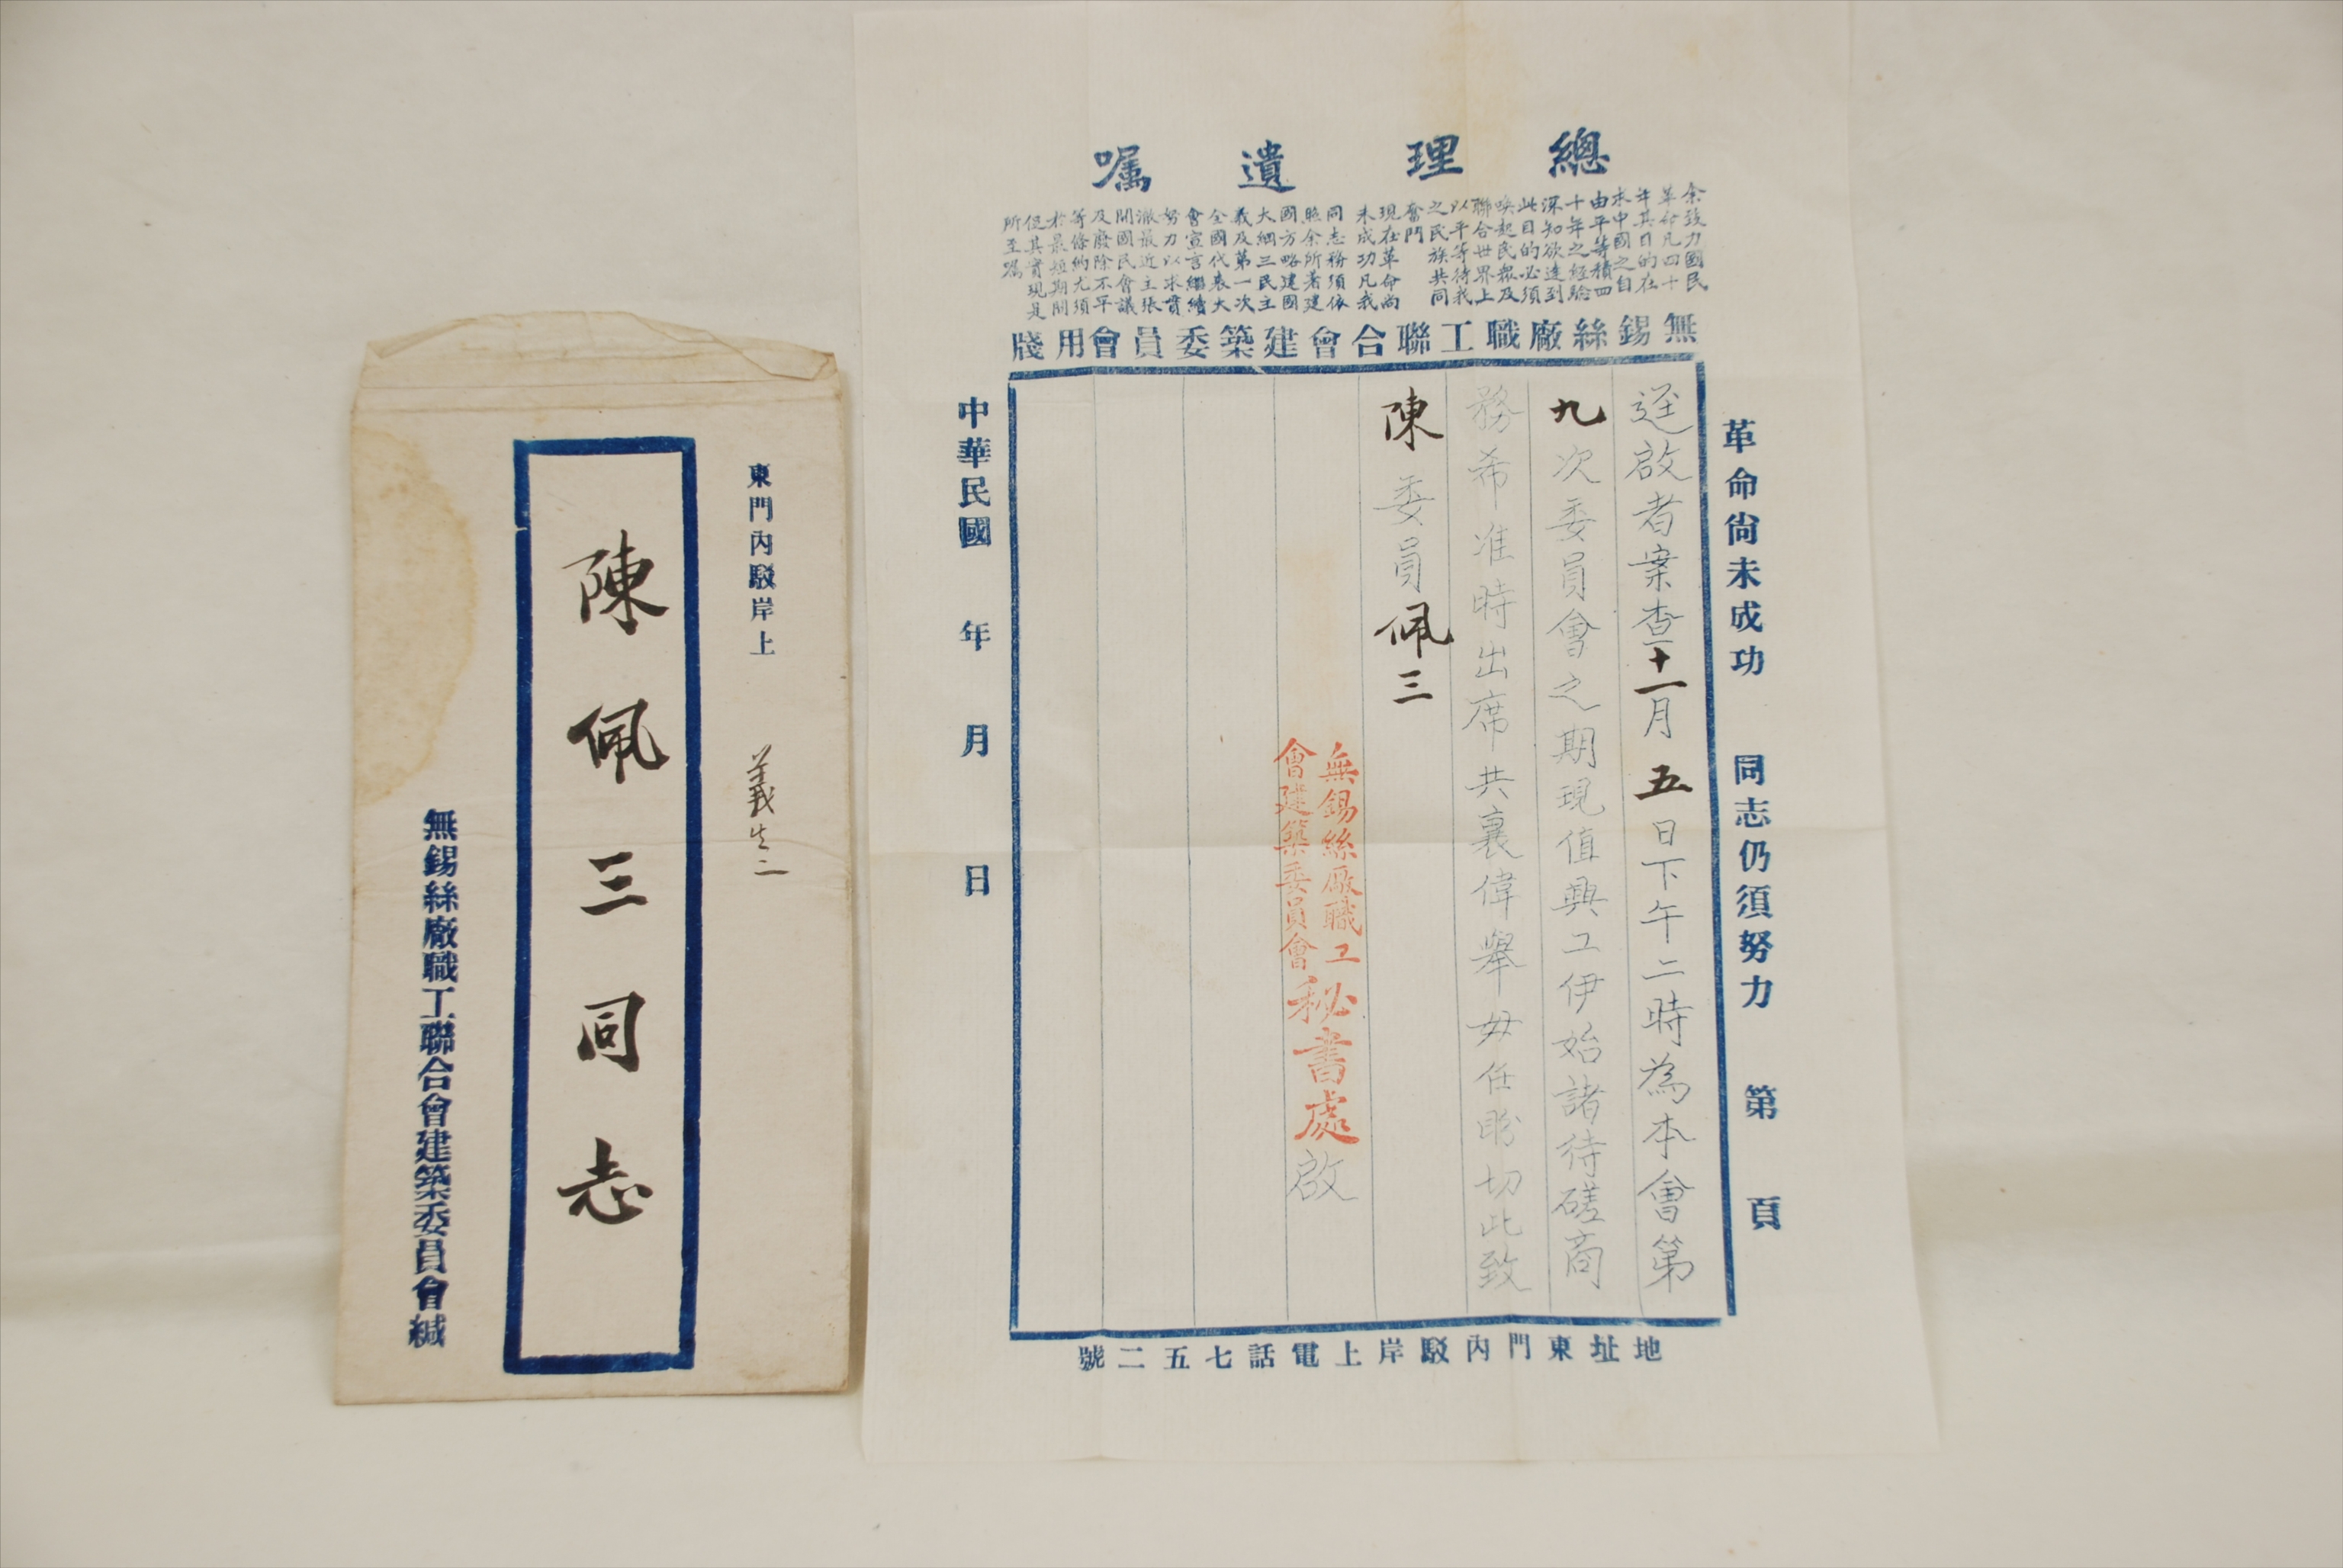 總理遺囑
余致力國民
革命凡四十
年其目的在
求中國之自
由平等積四
十年之經驗
深知欲達到
此目的必須
喚起民眾及
聯合世界上
以平等待我
之民族共同
奮鬥
現在革命尚
未成功凡我
同志務須依
照余所著建
國方略建國
大綱三民主
義及第一次
全國代表大
會宣言繼續
努力以求貫
澈最近主張
開國民會議
及廢除不平
等條約尤須
於最短期間
促其實現是
所至囑
無錫絲廠職工聯合會建築委員會用牋
革命尚未成功 同志仍須努力 第 頁
逕啟者案查十一月五日下午二時為本會第
九次委員會之期現值興工伊始諸待磋商
務希准時出席共襄偉舉毋任盼切此致
陳委員佩三
無錫絲廠職工
會建築委員會
秘書處啟
中華民國 年 月 日
地址東門內駁岸上電話七五二號
東門內駁岸上
義生二
陳佩三同志
無錫絲廠職工聯合會建築委員會緘